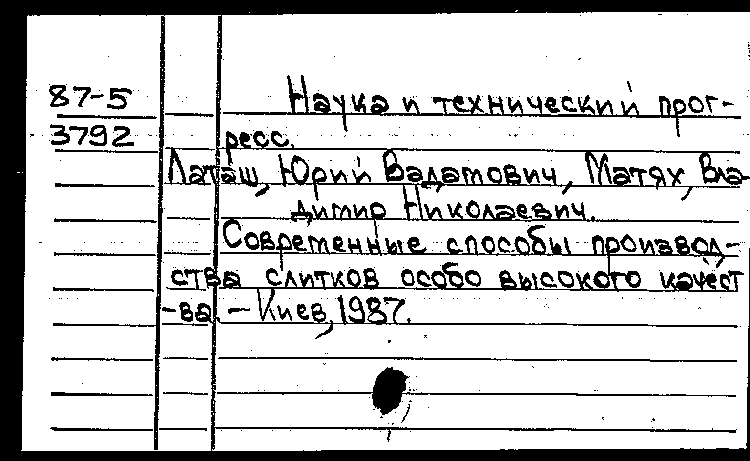 87-5 Наука и технический прог-
3792 ресс.
Латаш, Юрий Вадимович, Матях, Вла-
димир Николаевич.
Современные способы производ-
ства слитков особо высокого качест
-ва. - Киев, 1987.